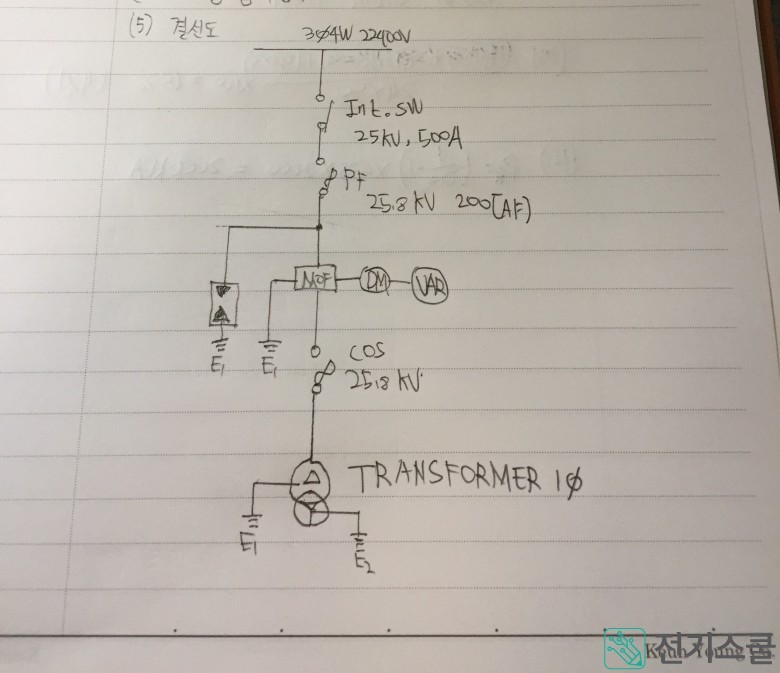 (5) 결선도
3ø4W 22900V
Int.SW
25KV, 500A
PF
25.8 KV 200[AF]
MOF
DM
VAR
E1
E1
COS
25.8 KV
TRANSFORMER 1ø
E1
E2
전기스쿨